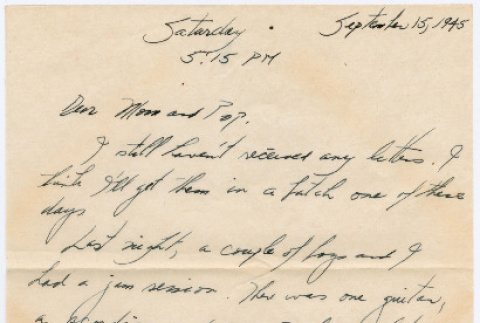 Saturday September 15, 1945
5:15 PM
Dear Mom and Pop,
I still haven't received any letters. I
think I'll get them in a batch one of these
days
Last night, a couple of boys and I
had a jam session. There was one guitar,